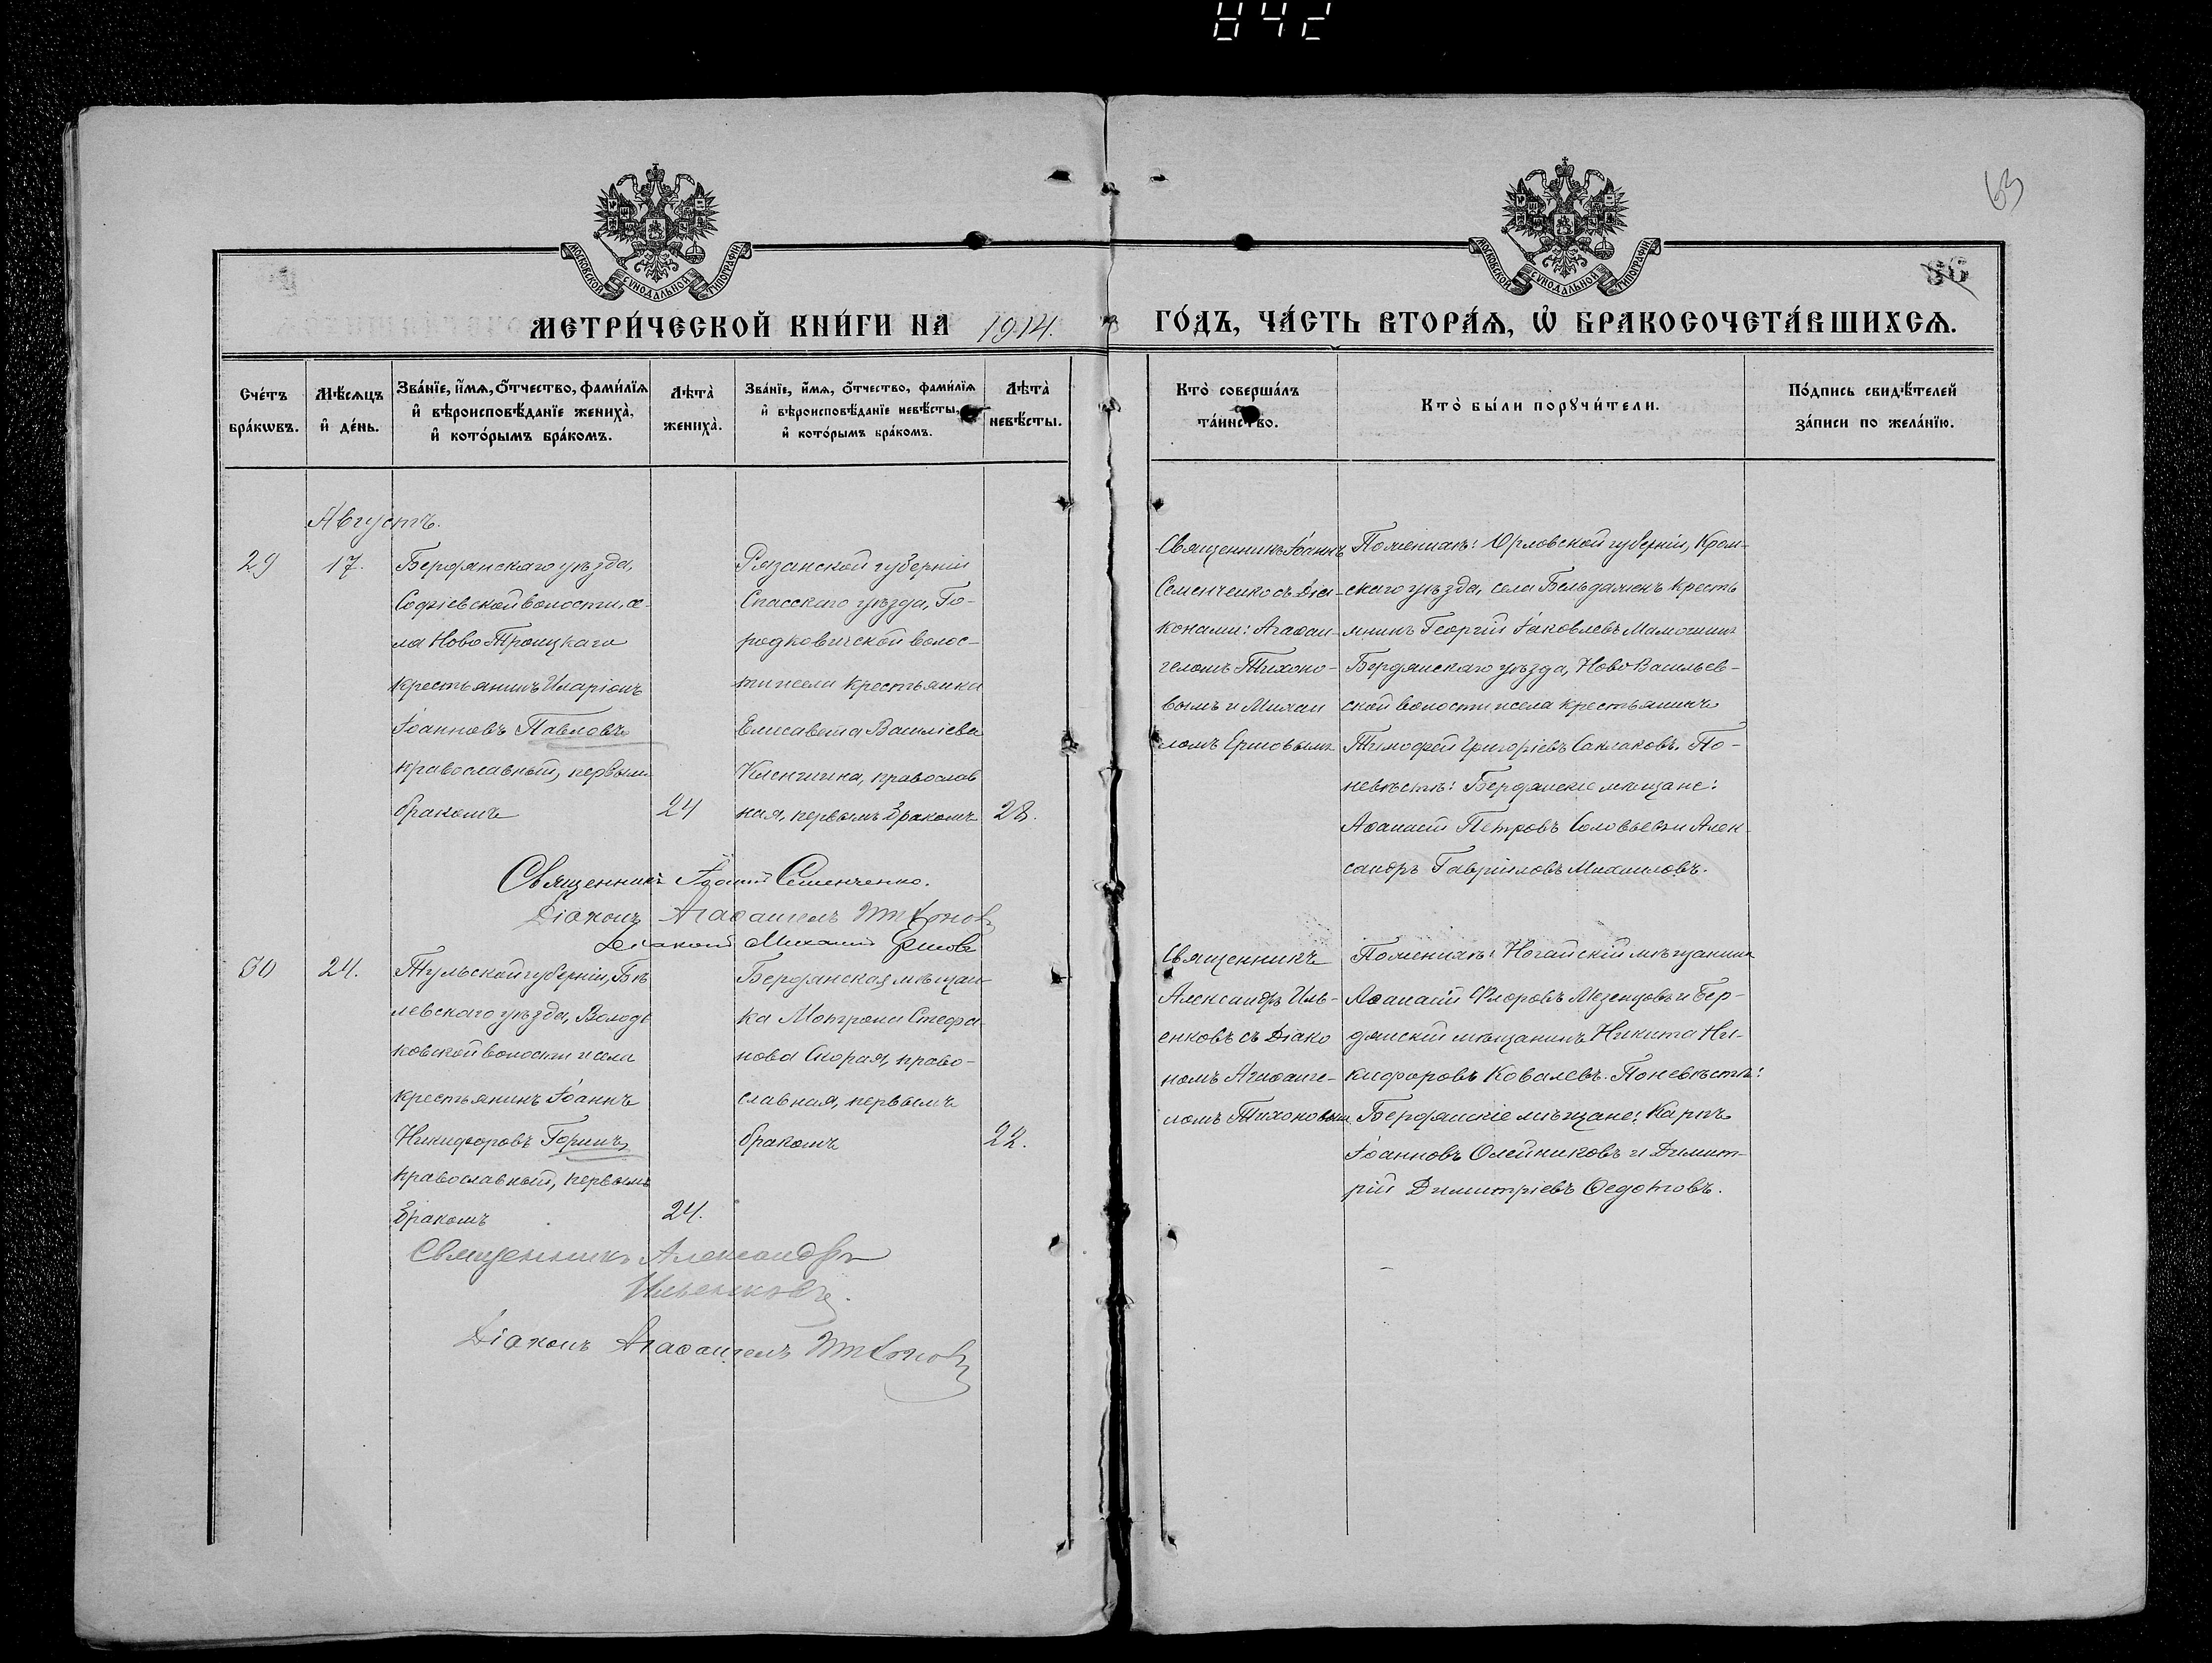 842
63
86
МОСКОВСКОЙ СѴНОДАЛЬНОЙ ТИПОГРАФІИ
МОСКОВСКОЙ СѴНОДАЛЬНОЙ ТИПОГРАФІИ
МЕТРИ́ЧЕСКОЙ КНИ́ГИ НА 1914. ГО́ДЪ, ЧА́СТЬ ВТОРА́Я, Ѽ БРАКОСОЧЕТА́ВШИХСЯ.
Сче́тъ бра́кѡвъ.
Мѣ́сяцъ и҆ де́нь.
Зва́нїе, и҆́мя, ѻ҆́тчество, фами́лїя
и҆ вѣроисповѣ́данїе жениха̀,
и҆ кото́рымъ бра́комъ.
Лѣта̀ жениха̀.
Зва́нїе, и҆́мя, ѻ҆́тчество, фами́лїя
и҆ вѣроисповѣ́данїе невѣ́сты,
и҆ кото́рымъ бра́комъ.
Лѣта̀ невѣ́сты.
Кто̀ соверша́лъ
та́инство.
Кто̀ бы́ли порꙋчи́тели.
По́дпись свидѣ́телей
за́писи по жела́нїю.
Августъ.
29
17.
Бердянскаго уѣзда,
Софіевской волости, се-
ла Ново Троицкаго
крестьянинъ Иларіонъ
Іоанновъ Павловъ
православный, первымъ
бракомъ
24
Рязанской губерніи
Спасскаго уѣзда, Го-
родковической волос-
ти и села крестьянка
Елисавета Василіева
православ
ная, первымъ бракомъ
28.
Священникъ Іоаннъ
Семенченко съ Діа-
конами: Агаѳан-
геломъ Тихоно-
вымъ и Михаи
ломъ Ершовымъ
По женихѣ: Орловской губерніи, Кром-
скаго уѣзда, села Бельдяжекъ кресть
янинъ Георгій Іаковлевъ Мамошинъ
Бердянскаго уѣзда, Ново Васильев-
ской волости и села крестьянинъ
Тимофей Григоріевъ Саклаковъ. По-
невѣстѣ: Бердянскіе мѣщане:
Аѳанасій Петровъ Соловьевъ и Алек-
сандръ Гавріиловъ Михаиловъ.
Священникъ Іоаннъ Семенченко.
Діаконъ Агаѳангелъ Тихоновъ
Діаконъ Михаилъ Ершовъ
30
24.
Тульской губерніи, Бѣ
левскаго уѣзда, Володь
ковской волости и села
крестьянинъ Іоаннъ
Никифоровъ Горинъ,
православный, первымъ
бракомъ
24.
Бердянская мѣщан-
ка Матрона Стефа-
нова Скорая, право-
славная, первымъ
бракомъ
22.
Священникъ
Александръ Иль-
енковъ съ Діако
номъ Агаѳанге-
ломъ Тихоновым
По женихѣ: Ногайскій мѣщанинъ
Аѳанасій Флоровъ Мезенцовъ и Бер-
дянскій мѣщанинъ Никита Ни-
кифоровъ Ковалевъ. По невѣстѣ:
Бердянскіе мѣщане: Карпъ
Іоанновъ Олейниковъ и Димит-
рій Димитріевъ Ѳедотовъ.
Священникъ Александръ
Ильенковъ.
Діаконъ Агаѳангелъ Тихоновъ